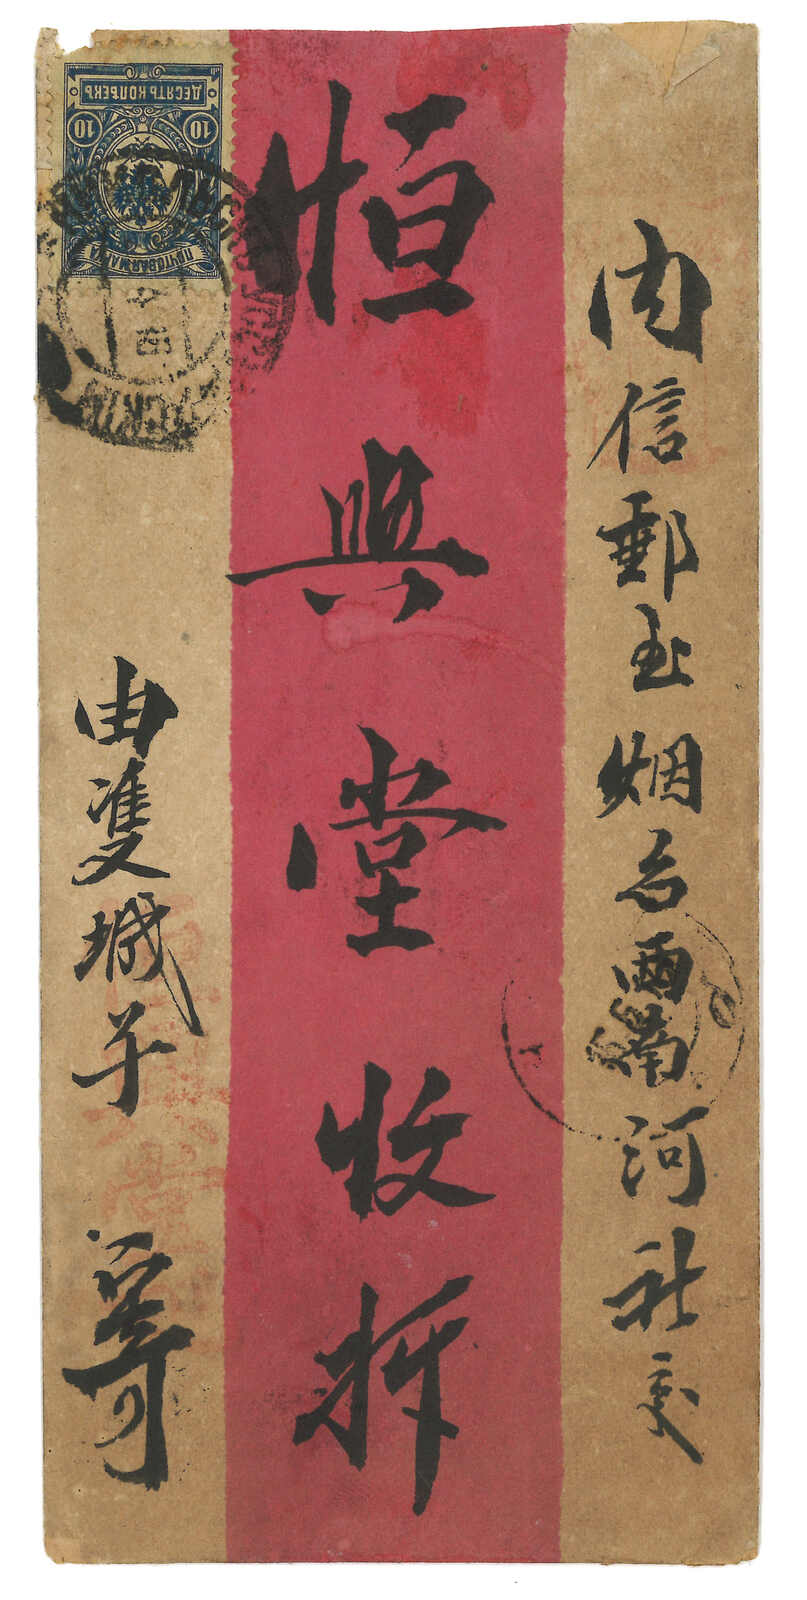 内信郵至烟台西南河社交
恒興堂收拆
由雙城子 寄
ДЕСЯТЬ КОПѢЕКЪ
10 10
ПОЧТОВАЯ МАРКА